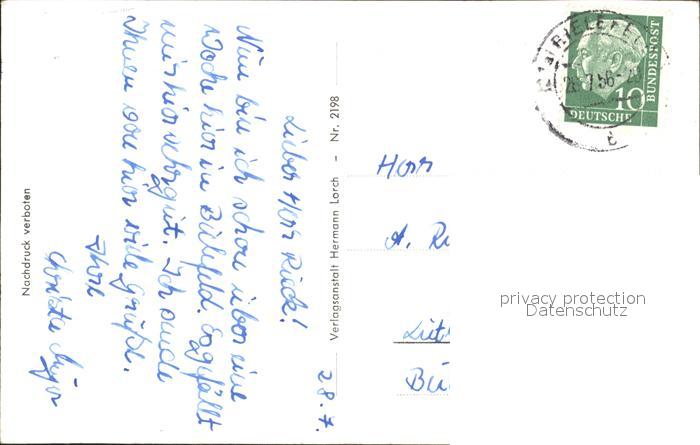 28.7.
Lieber Herr Rück!
Nun bin ich schon über eine
Woche hier in Bielefeld. Es gefällt
mir hier sehr gut. Ich sende
Ihnen von hier viele Grüße.
Ihre
Christa
Nachdruck verboten
Verlagsanstalt Hermann Lorch - Nr. 2198
BIELEFEL
7.56
10
DEUTSCHE
BUNDESPOST
Herr
A. Rü
privacy protection
Datenschutz